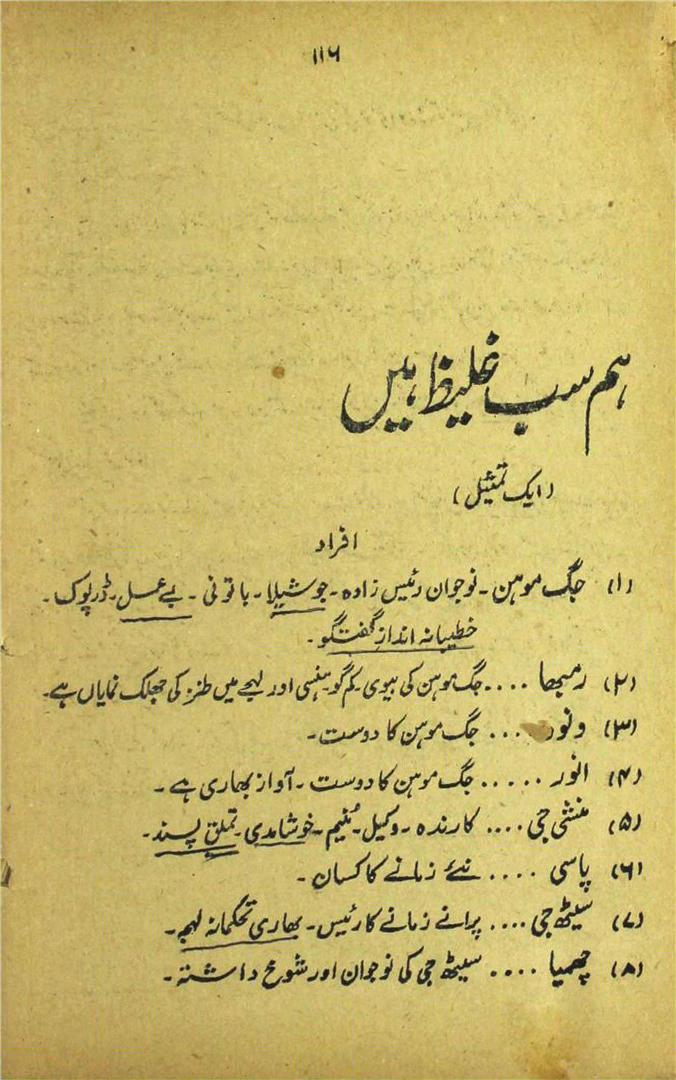 ۱۱۶
ہم سب غلیظ ہیں
(ایک تمثیل)
افراد
(۱) جگ موہن۔ نوجوان رئیس زادہ۔ جوشیلا۔ باتونی۔ بے عمل۔ ڈرپوک۔
خطیبانہ اندازِ گفتگو۔
(۲) رمبھا .... جگ موہن کی بیوی۔ کم گو۔ ہنسی اور لہجے میں طنز کی جھلک نمایاں ہے۔
(۳) ونود .... جگ موہن کا دوست۔
(۴) انور ..... جگ موہن کا دوست۔ آواز بھاری ہے۔
(۵) منشی جی .... کارندہ۔ وکیل۔ مُنیم۔ خوشامدی۔ تملق پسند۔
(۶) پاسی .... نئے زمانے کا کسان۔
(۷) سیٹھ جی .... پرانے زمانے کا رئیس۔ بھاری تحکمانہ لہجہ۔
(۸) چھمیا .... سیٹھ جی کی نوجوان اور شوخ داشتہ۔